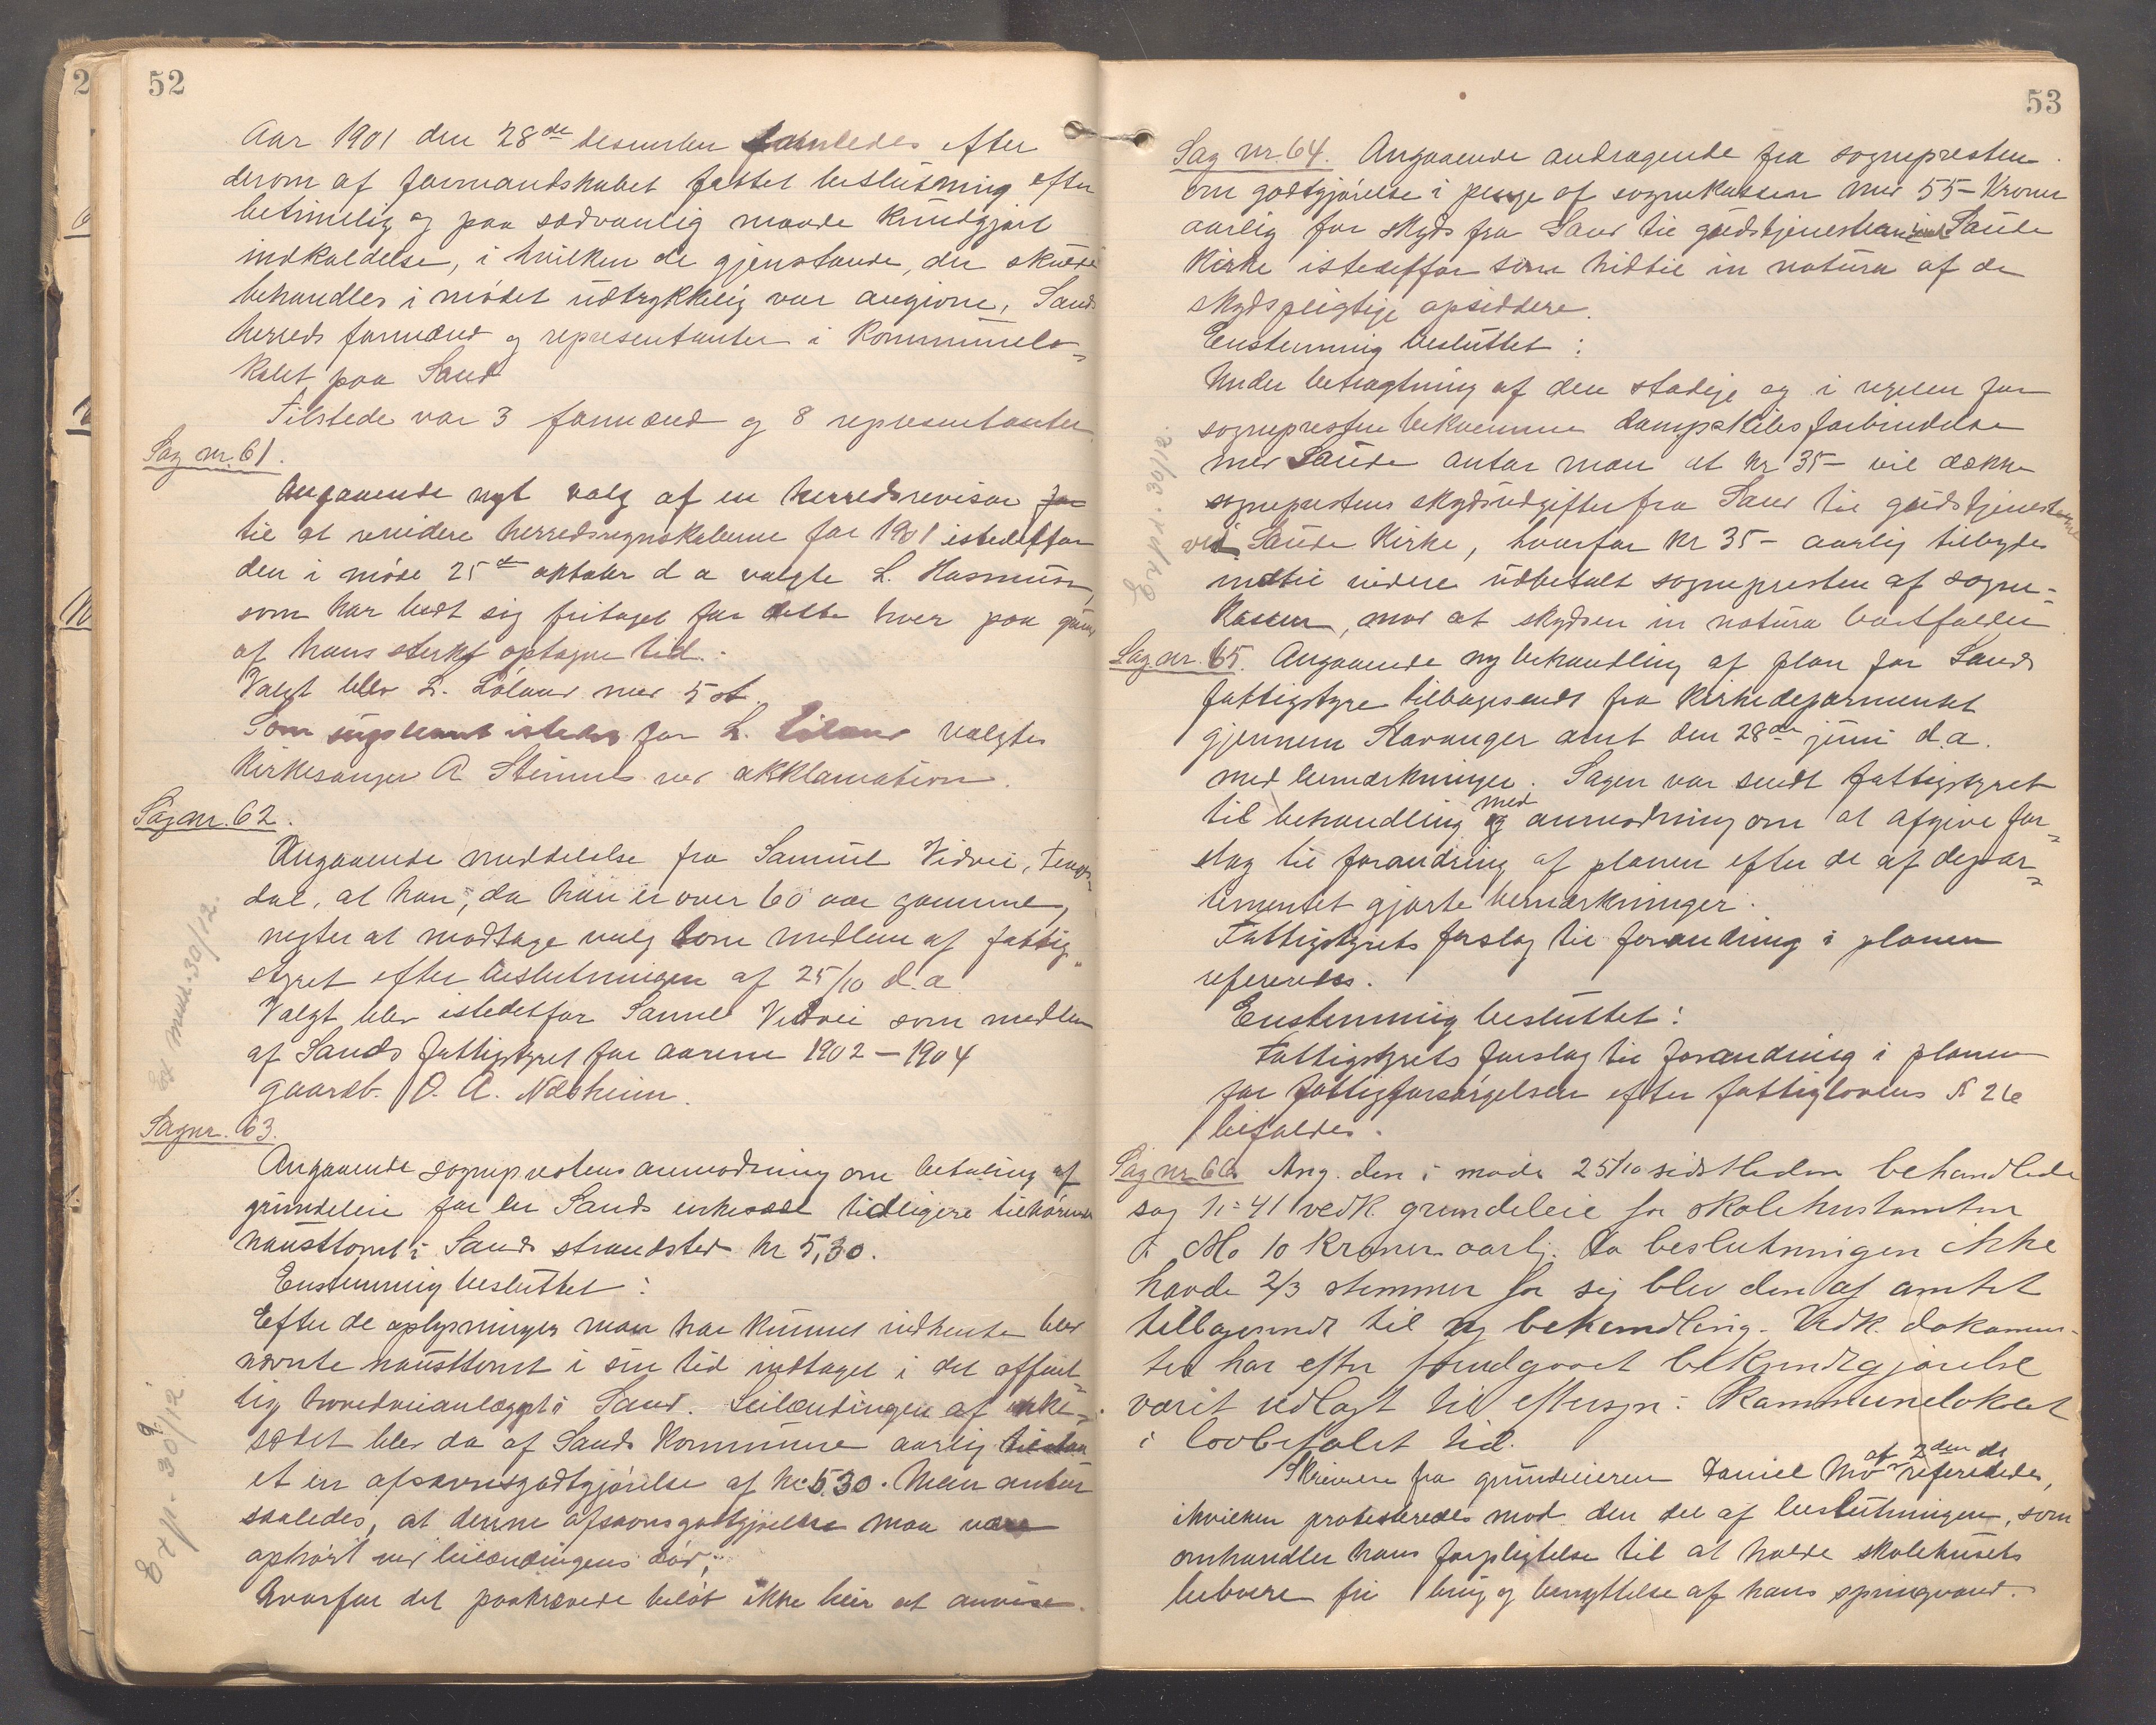 52
Aar 1901 den 28de desember samledes efter
derom af formandskabet fattet beslutning efter
betimelig og paa sædvanlig maade kundgjort
indkaldelse, i hvilken de gjenstande, der skulde
behandles i mødet udtrykkelig var angivne, Sands
herreds formænd og representanter i Kommunelo=
kalet paa Sand
Tilstede var 3 formænd og 8 representanter
Sag nr. 61.
Angaaende nyt valg af en herredsrevisor for
til at revidere herredsregnskaberne for 1901 istedetfor
den i møde 25de oktober d a valgte L. Rasmusen,
som har bedt sig fritaget for dette hver paa grund
af hans sterkt optagne tid.
Valgt blev L. Løland med 5 st.
Som supleant istedet for L. Løland valgtes
Kirkesanger A Steinnes ved akklamation.
Sag nr. 62.
Angaaende meddelelse fra Samuel Vidvei,
dal, at han, da han er over 60 aar gammel,
negter at modtage valg som medlem af fattig
styret efter beslutningen af 25/10 d.a
Valgt blev istedetfor Samuel Vidvei som medlem
af Sands fattigstyret for aarene 1902 – 1904
gaardb. O. A. Næsheim.
Sag nr. 63.
Angaaende sogneprestens anmodning om betaling af
grundeleie for en Sands enkesæde tidligere tilhørende
nausttomt i Sands strandsted kr 5,30.
Enstemmig besluttet:
Efter de oplysninger man har kunnet indhente blev
nævnte nausttomt i sin tid indtaget i det offent=
lig hovedveianlægget i Sand. Leilendingen af enke=
sædet blev da af Sands Kommune aarlig tilstaa
et en afsavnsgodtgjørelse af kr 5,30. Man antar
saaledes, at denne afsavnsgodtgjørelse maa være
ophørt ved leilendingens død,
hvorfor det paakrævede beløb ikke blir at anvise.
Ex 30/12.
Exp. 30/12
53
Sag nr. 64. Angaaende andragende fra sognepresten
om godtgjørelse i penge af sognekassen med 55– Kroner
aarlig for skyds fra Sand til gudstjenesterne ved Saude
Kirke istedetfor som hidtil in natura af de
skydspligtige opsiddere.
Enstemmig besluttet:
Under betragtning af den stadige og i regelen for
sognepresten bekvemme dampskibsforbindelse
med Saude antar man at kr 35– vil dække
sogneprestens skydsudgifter fra Sand til gudstjenesterne
ved Saude Kirke, hvorfor kr 35– aarlig tilbydes
indtil videre udbetalt sognepresten af sogne=
kassen, mod at skydsen in natura bortfalder
Exp. 30/12.
Sag nr. 65. Angaaende ny behandling af plan for Sands
fattigstyre tilbagesendt fra Kirkedeparmentet
gjennem Stavanger amt den 28de juni d.a.
med bemærkninger. Sagen var sendt fattigstyret
til behandling og med anmodning om at afgive for=
slag til forandring af planen efter de af depar=
tementet gjorte bemærkninger.
Fattigstyrets forslag til forandring i planen
refereredes.
Enstemmig besluttet:
Fattigstyrets forslag til forandring i planen
for fattigforsørgelsen efter fattiglovens § 26
bifaldes.
Sag nr 66. Ang. den i møde 25/10 sidstleden behandlede
sag n: 41 vedk. grundeleie for skolehustomten
i Mo 10 kroner aarlig. Da beslutningen ikke
havde 2/3 stemmer for sig blev den af amtet
tilbagesendt til ny behandling. Vedk. dokumen-
ter har efter forudgaaet bekjendtgjørelse
været udlagt til eftersyn i Kommunelokalet
i lovbefalet tid.
Skrivelse fra grundeieren Daniel Mo af 2den ds refereredes,
ihvilken protesteredes mod den del af beslutningen, som
omhandler hans forpligtelse til at holde skolehusets
beboere fri brug og benyttelse af hans springvand.